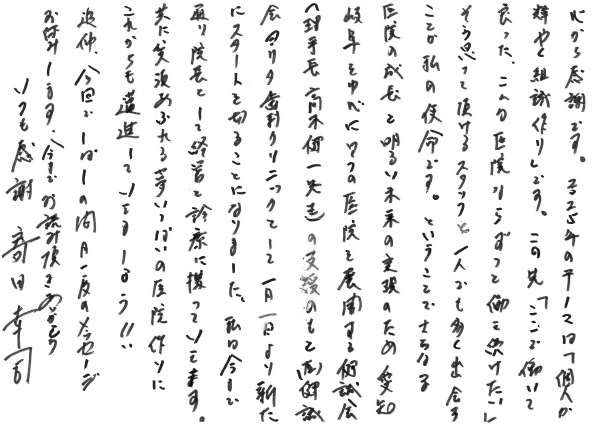 心から感謝です。2025年のテーマは「個人が
輝やく組織作り」です。この先「ここで働いて
良った、この医院でずっと働き続けたい」
そう思って頂けるスタッフと一人でも多く出会う
ことが私の使命です。ということで士ちなる
医院の成長と明るい未来の実現のため愛知
岐阜を中心に17の医院を展開する健誠会
の理事長 高木健一先生の支援のもと(医)健誠
会 マリタ歯科クリニックとして一月一日より新た
にスタートを切ることになりました。私は今まで
通り院長として経営と診療に携っていきます。
共に笑涙あふれる夢いっぱいの医院作りに
これからも邁進していきましょう!!
追伸、今回でしばしの間月一度のメッセージ
お休みします。今までお読み頂きありがとう
いつも感謝 幸司